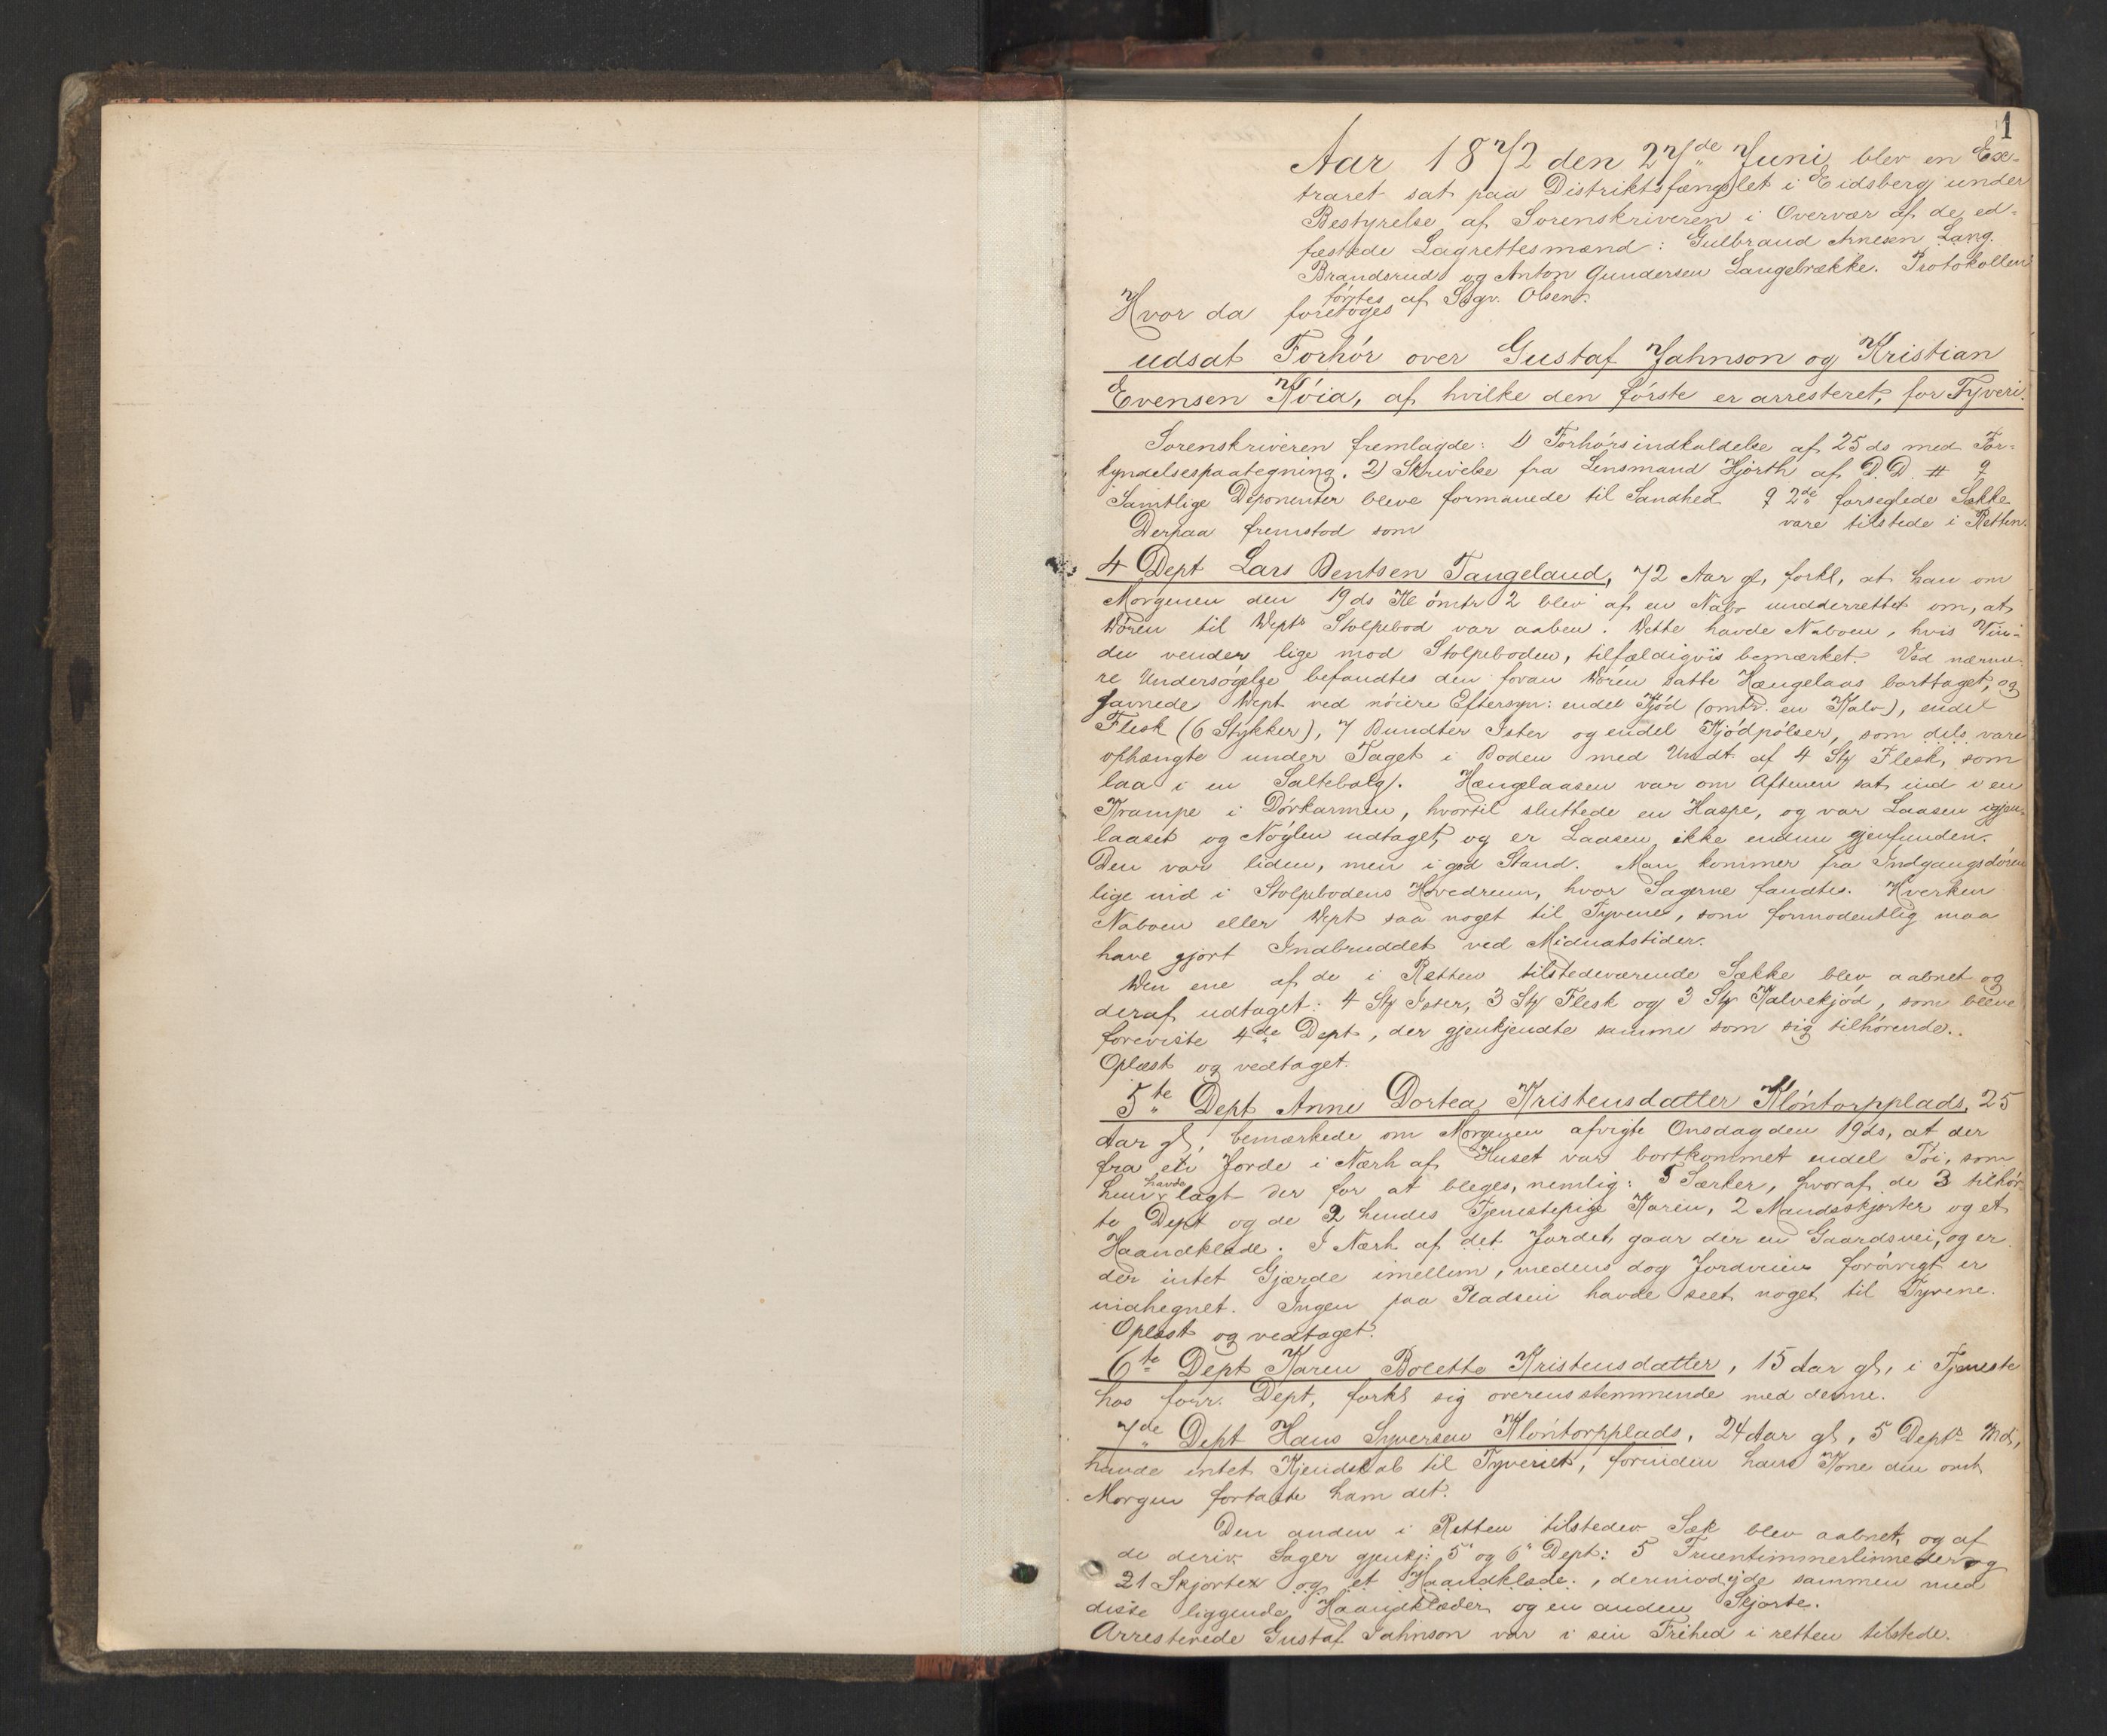 1
Aar 1872 den 27de Juni blev en Ex-
traret sat paa Distriktsfængslet i Eidsberg under
Bestyrelse af Sorenskriveren i Overvær af de ed-
fæstede Lagrettesmænd: Gulbrand Arnesen Lang.
Brandsrud og Anton Gundersen Langebrække. Protokollen
førtes af Sagv. Olsen.
Hvor da foretoges
udsat Forhör over Gustaf Jahnson og Kristian
Evensen Köia, af hvilke den förste er arresteret, for Tyveri.
Sorenskriveren fremlagde: 1) Forhörsindkaldelse af 25 ds med For-
kyndelsespaategning. 2) Skrivelse fra Lensmand Hjorth af D.D. #
Samtlige Deponenter bleve formanede til Sandhed 2de forseglede Sække
vare tilstede i Retten.
Derpaa fremstod som
4 Dept Lars Bentsen Tangeland, 72 Aar gl, forkl, at han om
Morgenen den 19 ds Kl omtr 2 blev af en Nabo underrettet om, at
Dören til Depts Stolpebod var aaben. Dette havde Naboen, hvis Vin-
du vender lige mod Stolpeboden, tilfældigvis bemærket. Ved nærme-
re Undersögelse befandtes den foran Dören satte Hængelaas borttaget, og
savnede Dept ved nöiere Eftersyn: endel Kjöd (omtr. en Kalv), endel
Flesk (6 Stykker), 7 Bundter Ister og endel Kjödpölser, som dels vare
ophængte under Taget i Boden med Undt. af 4 Stk Flesk, som
laa i en Saltebalg. Hængelaasen var om Aftenen sat ind i en
Krampe i Dörkarmen, hvortil sluttede en Haspe, og var Laasen igjen-
laaset og Nöglen udtaget, og er Laasen ikke endnu gjenfunden.
Den var liden, men i god Stand. Man kommer fra Indgangsdören
lige ind i Stolpebodens Hovedrum, hvor Sagerne fandtes. Hverken
Naboen eller Dept saa noget til Tyvene, som formodentlig maa
have gjort Indbruddet ved Midnatstider.
Den ene af de i Retten tilstedeværende Sække blev aabnet og
deraf udtaget: 4 Stk Ister, 3 Stk Flesk og 3 Stk Kalvekjöd, som bleve
foreviste 4de Dept, der gjenkjendte samme som sig tilhörende.
Oplæst og vedtaget.
5te Dept Anne Dortea Kristensdatter Klöntorpplads, 25
Aar gl, bemærkede om Morgenen afvigte Onsdag den 19 ds, at der
fra et Jorde i Nærh af Huset var bortkommet endel Töi, som
hun havde lagt der for at bleges, nemlig: 5 Særker, hvoraf de 3 tilhör-
te Dept og de 2 hendes Tjenestepige Karen, 2 Mandsskjorter og et
Haandklæde. I Nærh af det Jordet gaar der en Gaardsvei, og er
der intet Gjærde imellem, medens dog Jordveien forövrigt er
indhegnet. Ingen paa Pladsen havde seet noget til Tyvene.
Oplæst og vedtaget.
6te Dept Karen Bolette Kristensdatter, 15 Aar gl, i Tjeneste
hos forr. Dept, forkl sig overensstemmende med denne.
7de Dept Hans Syversen Klöntorpplads, 24 Aar gl, 5 Depts Md,
havde intet Kjendskab til Tyveriet, forinden hans Kone den omh
Morgen fortalte ham det.
Den anden i Retten tilstedev Sæk blev aabnet, og af
de deriv Sager gjenkj: 5 og 6 Dept: 5 Fruentimmerlinneder og
21 Skjorter og et Haandklæde, derimod ej de sammen med
disse liggende Haandklæder og en anden Skjorte.
Arresterede Gustaf Jahnson var i sin Frihed i retten tilstede.